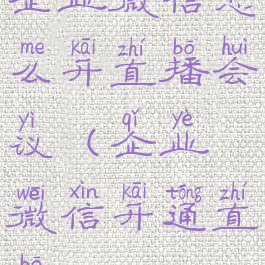 企业微信怎
me kāi zhí bō huì
么开直播会
yì qǐ yè
议（企业
wēi xìn kāi tōng zhí
微信开通直
bō